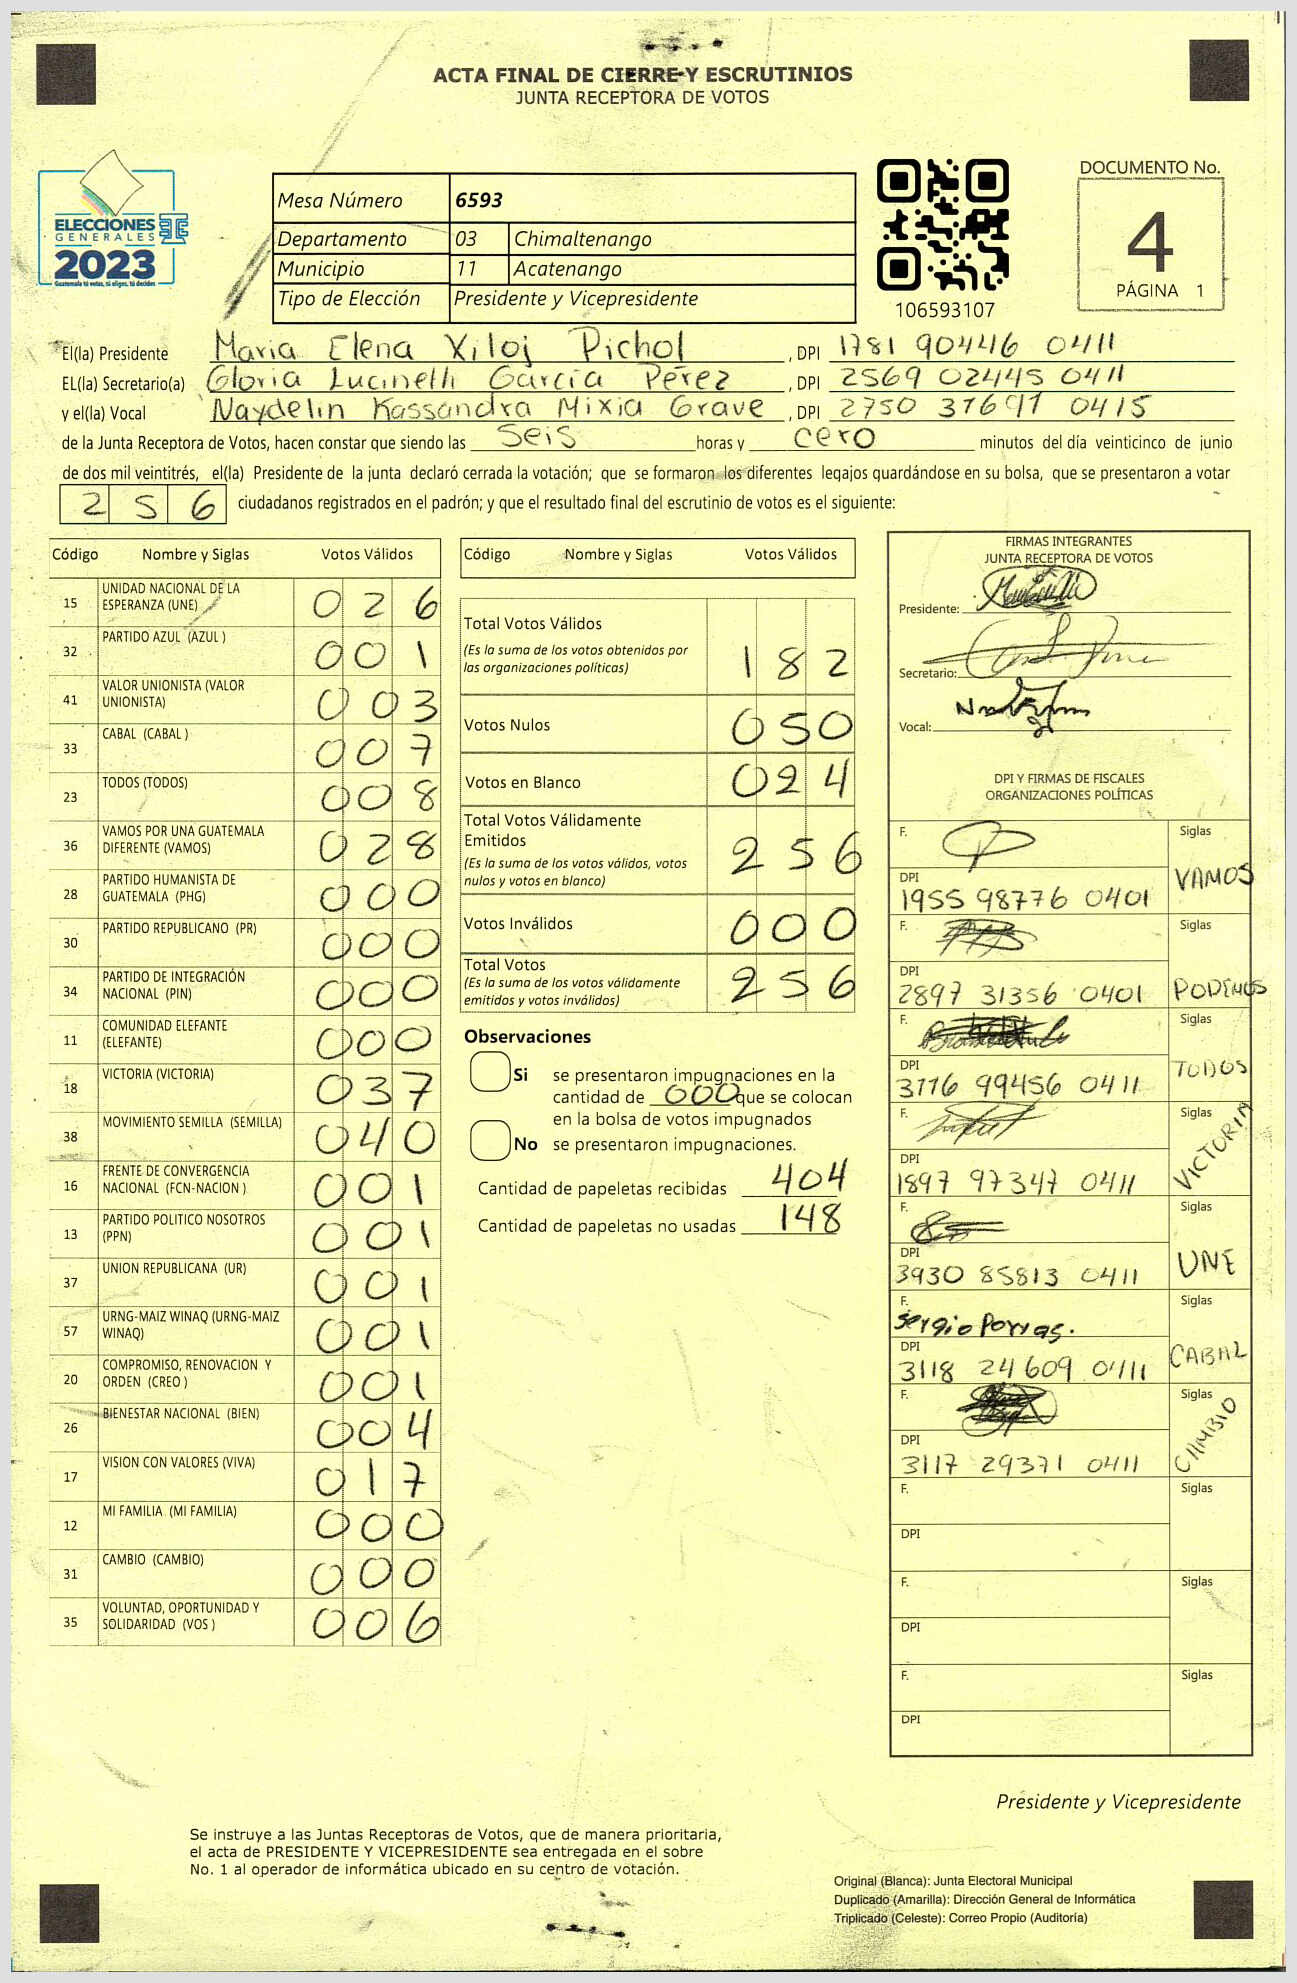 ACTA FINAL DE CIERRE Y ESCRUTINIOS
JUNTA RECEPTORA DE VOTOS
ELECCIONES
GENERALES
2023
Guatemala tú votas, tú eliges, tú decides
Mesa Número 6593
Departamento 03 Chimaltenango
Municipio 11 Acatenango
Tipo de Elección Presidente y Vicepresidente
106593107
DOCUMENTO No.
4
PÁGINA 1
El(la) Presidente Maria Elena Xiloj Pichol , DPI 1781 90446 0411
EL(la) Secretario(a) Gloria Lucinelli García Pérez , DPI 2569 02445 0411
y el(la) Vocal Naydelin Kassandra Mixia Grave , DPI 2750 37697 0415
de la Junta Receptora de Votos, hacen constar que siendo las seis horas y cero minutos del día veinticinco de junio
de dos mil veintitrés, el(la) Presidente de la junta declaró cerrada la votación; que se formaron los diferentes legajos guardándose en su bolsa, que se presentaron a votar
256 ciudadanos registrados en el padrón; y que el resultado final del escrutinio de votos es el siguiente:
Código Nombre y Siglas Votos Válidos
15 UNIDAD NACIONAL DE LA ESPERANZA (UNE) 026
32 PARTIDO AZUL (AZUL ) 001
41 VALOR UNIONISTA (VALOR UNIONISTA) 003
33 CABAL (CABAL ) 007
23 TODOS (TODOS) 008
36 VAMOS POR UNA GUATEMALA DIFERENTE (VAMOS) 028
28 PARTIDO HUMANISTA DE GUATEMALA (PHG) 000
30 PARTIDO REPUBLICANO (PR) 000
34 PARTIDO DE INTEGRACIÓN NACIONAL (PIN) 000
11 COMUNIDAD ELEFANTE (ELEFANTE) 000
18 VICTORIA (VICTORIA) 037
38 MOVIMIENTO SEMILLA (SEMILLA) 040
16 FRENTE DE CONVERGENCIA NACIONAL (FCN-NACION ) 001
13 PARTIDO POLITICO NOSOTROS (PPN) 001
37 UNION REPUBLICANA (UR) 001
57 URNG-MAIZ WINAQ (URNG-MAIZ WINAQ) 001
20 COMPROMISO, RENOVACION Y ORDEN (CREO ) 001
26 BIENESTAR NACIONAL (BIEN) 004
17 VISION CON VALORES (VIVA) 017
12 MI FAMILIA (MI FAMILIA) 000
31 CAMBIO (CAMBIO) 000
35 VOLUNTAD, OPORTUNIDAD Y SOLIDARIDAD (VOS ) 006
Código Nombre y Siglas Votos Válidos
Total Votos Válidos
(Es la suma de los votos obtenidos por
las organizaciones políticas) 182
Votos Nulos 050
Votos en Blanco 024
Total Votos Válidamente
Emitidos 256
(Es la suma de los votos válidos, votos
nulos y votos en blanco)
Votos Inválidos 000
Total Votos 256
(Es la suma de los votos válidamente
emitidos y votos inválidos)
Observaciones
Si se presentaron impugnaciones en la
cantidad de 000 que se colocan
en la bolsa de votos impugnados
No se presentaron impugnaciones.
Cantidad de papeletas recibidas 404
Cantidad de papeletas no usadas 148
FIRMAS INTEGRANTES
JUNTA RECEPTORA DE VOTOS
Presidente:
Secretario:
Vocal:
DPI Y FIRMAS DE FISCALES
ORGANIZACIONES POLÍTICAS
F. Siglas
DPI VAMOS
1955 98776 0401
F. Siglas
DPI
2897 31356 0401 PODEMOS
F. Siglas
DPI TODOS
3776 99456 0411
F. Siglas
DPI VICTORIA
1897 97347 0411
F. Siglas
DPI UNE
3930 85813 0411
F. Siglas
Sergio Porras.
DPI CABAL
3118 24609 0411
F. Siglas
DPI CAMBIO
3117 29371 0411
F. Siglas
DPI
F. Siglas
DPI
F. Siglas
DPI
Presidente y Vicepresidente
Se instruye a las Juntas Receptoras de Votos, que de manera prioritaria,
el acta de PRESIDENTE Y VICEPRESIDENTE sea entregada en el sobre
No. 1 al operador de informática ubicado en su centro de votación.
Original (Blanca): Junta Electoral Municipal
Duplicado (Amarilla): Dirección General de Informática
Triplicado (Celeste): Correo Propio (Auditoría)